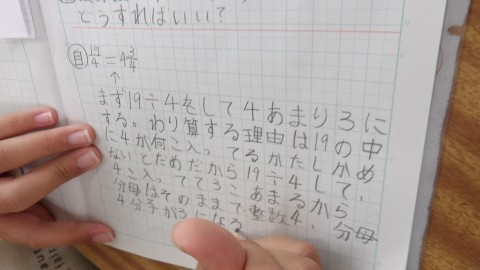 どうすればいい?
自 19/4 = 4 3/4
↑
まず19÷4をして4あまり3に
する。わり算する理由は19の中
に4が何こ入ってるかたしかめ
ないとだめだから19÷4して、
4こ入ってて3こあまるから
分母はそのままで整数4、分母
4分子が3になる